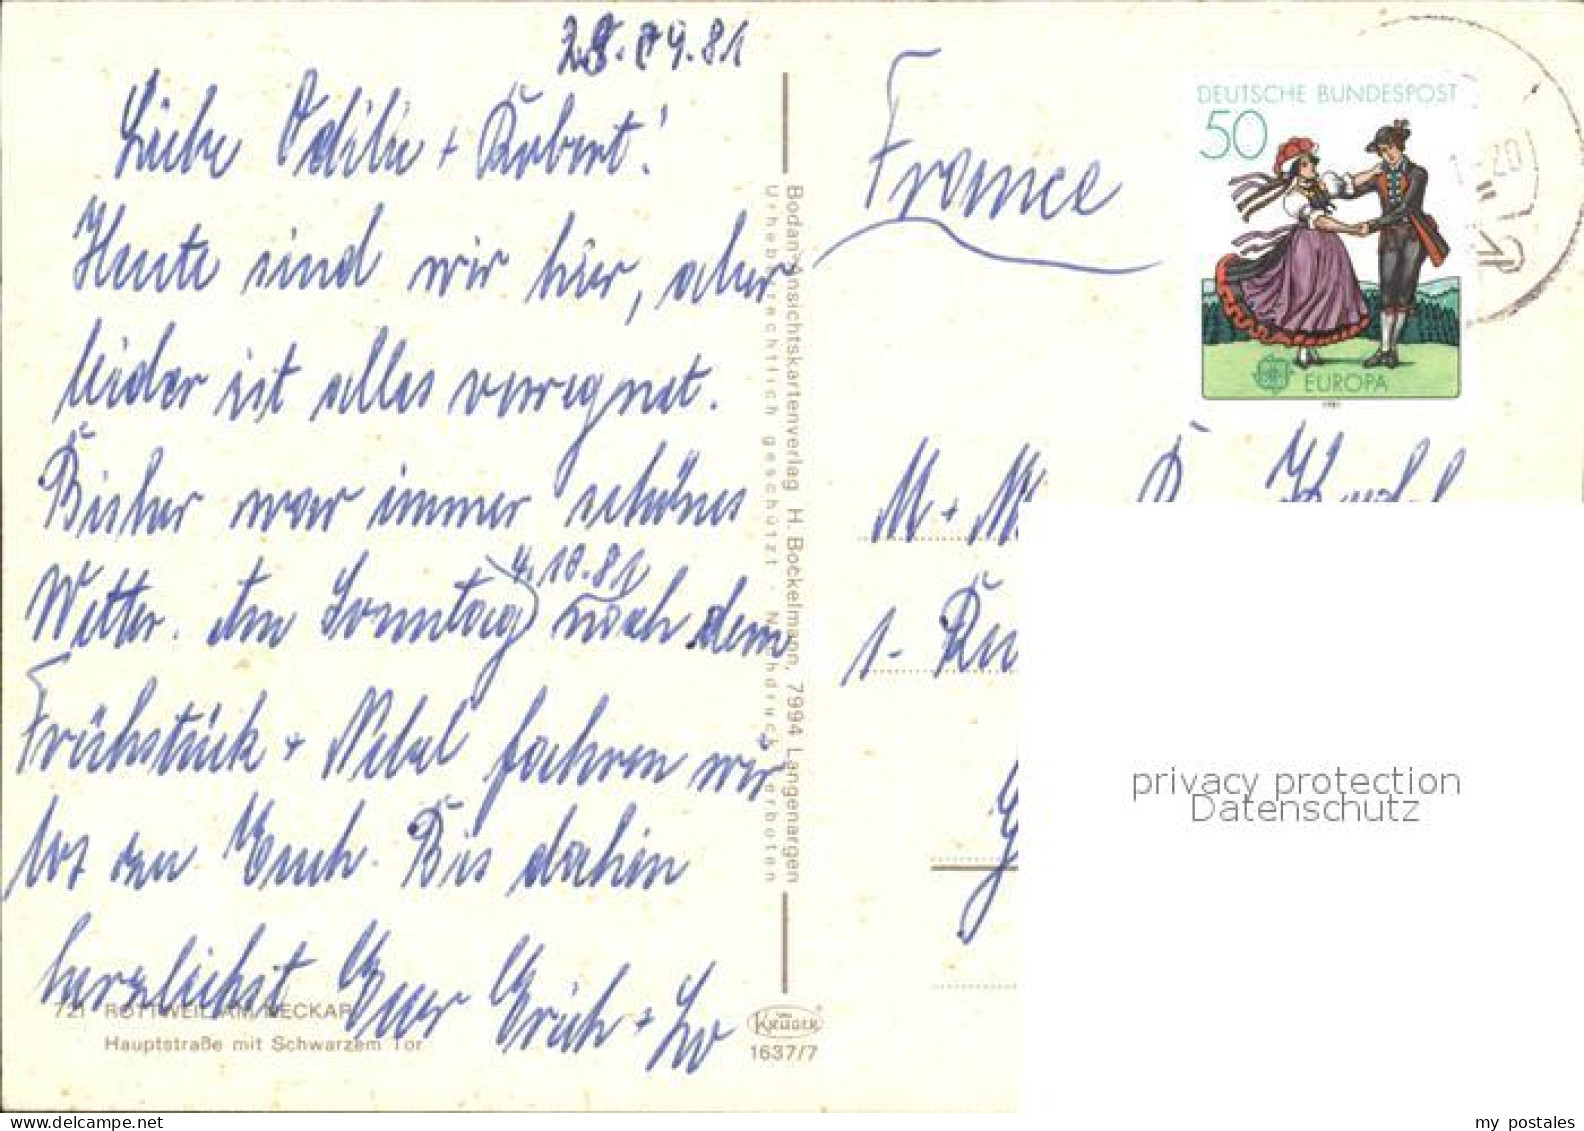 28.09.81
Liebe Odilie + Robert!
Heute sind wir hier, aber
leider ist alles verregnet.
Bisher war immer schönes
Wetter. Am Sonntag nach dem
4.10.81
Frühstück + Nebel fahren wir
los zu Euch. Bis dahin
herzlichst Euer Erich + Lo
721 ROTTWEIL AM NECKAR
Hauptstraße mit Schwarzem Tor
Bodan-Ansichtskartenverlag H. Bockelmann, 7994 Langenargen
Urheberrechtlich geschützt · Nachdruck verboten
KRÜGER
1637/7
France
DEUTSCHE BUNDESPOST
50
EUROPA
1981
M + M
1-
privacy protection
Datenschutz
my postales
www.delcampe.net